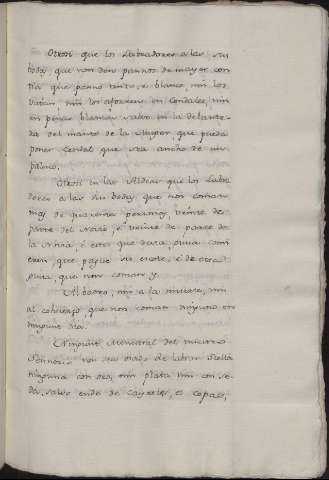 Otrosi que los Labradores a las sus
bodas que non den pannos de mayor con
tia que panno tinto, e blanco, nin los
nin los aforren en Cendales, nin
en penas blancas salvo en la delante
ra del manto de la Muger que pueda
poner Cendal que sea ancho de un
palmo.
Otrosi en las Aldeas que los Labra
dores a las sus bodas, que non coman
mas de quarenta personas, veinte de
parte del Novio, e veinte de parte de
la Novia, e estos que
que pague su escote, e de otra
que non coman y.
Al bateo, nin a la misare, nin
al cohuerzo, que non coman ninguno en
ningunt dia.
Ningunt Menestral del nuestro
Sennorio non sea osado de labrar Siella
ninguna con oro, nin plata nin con se
da, salvo ende de Cavalleros, e Copaes,